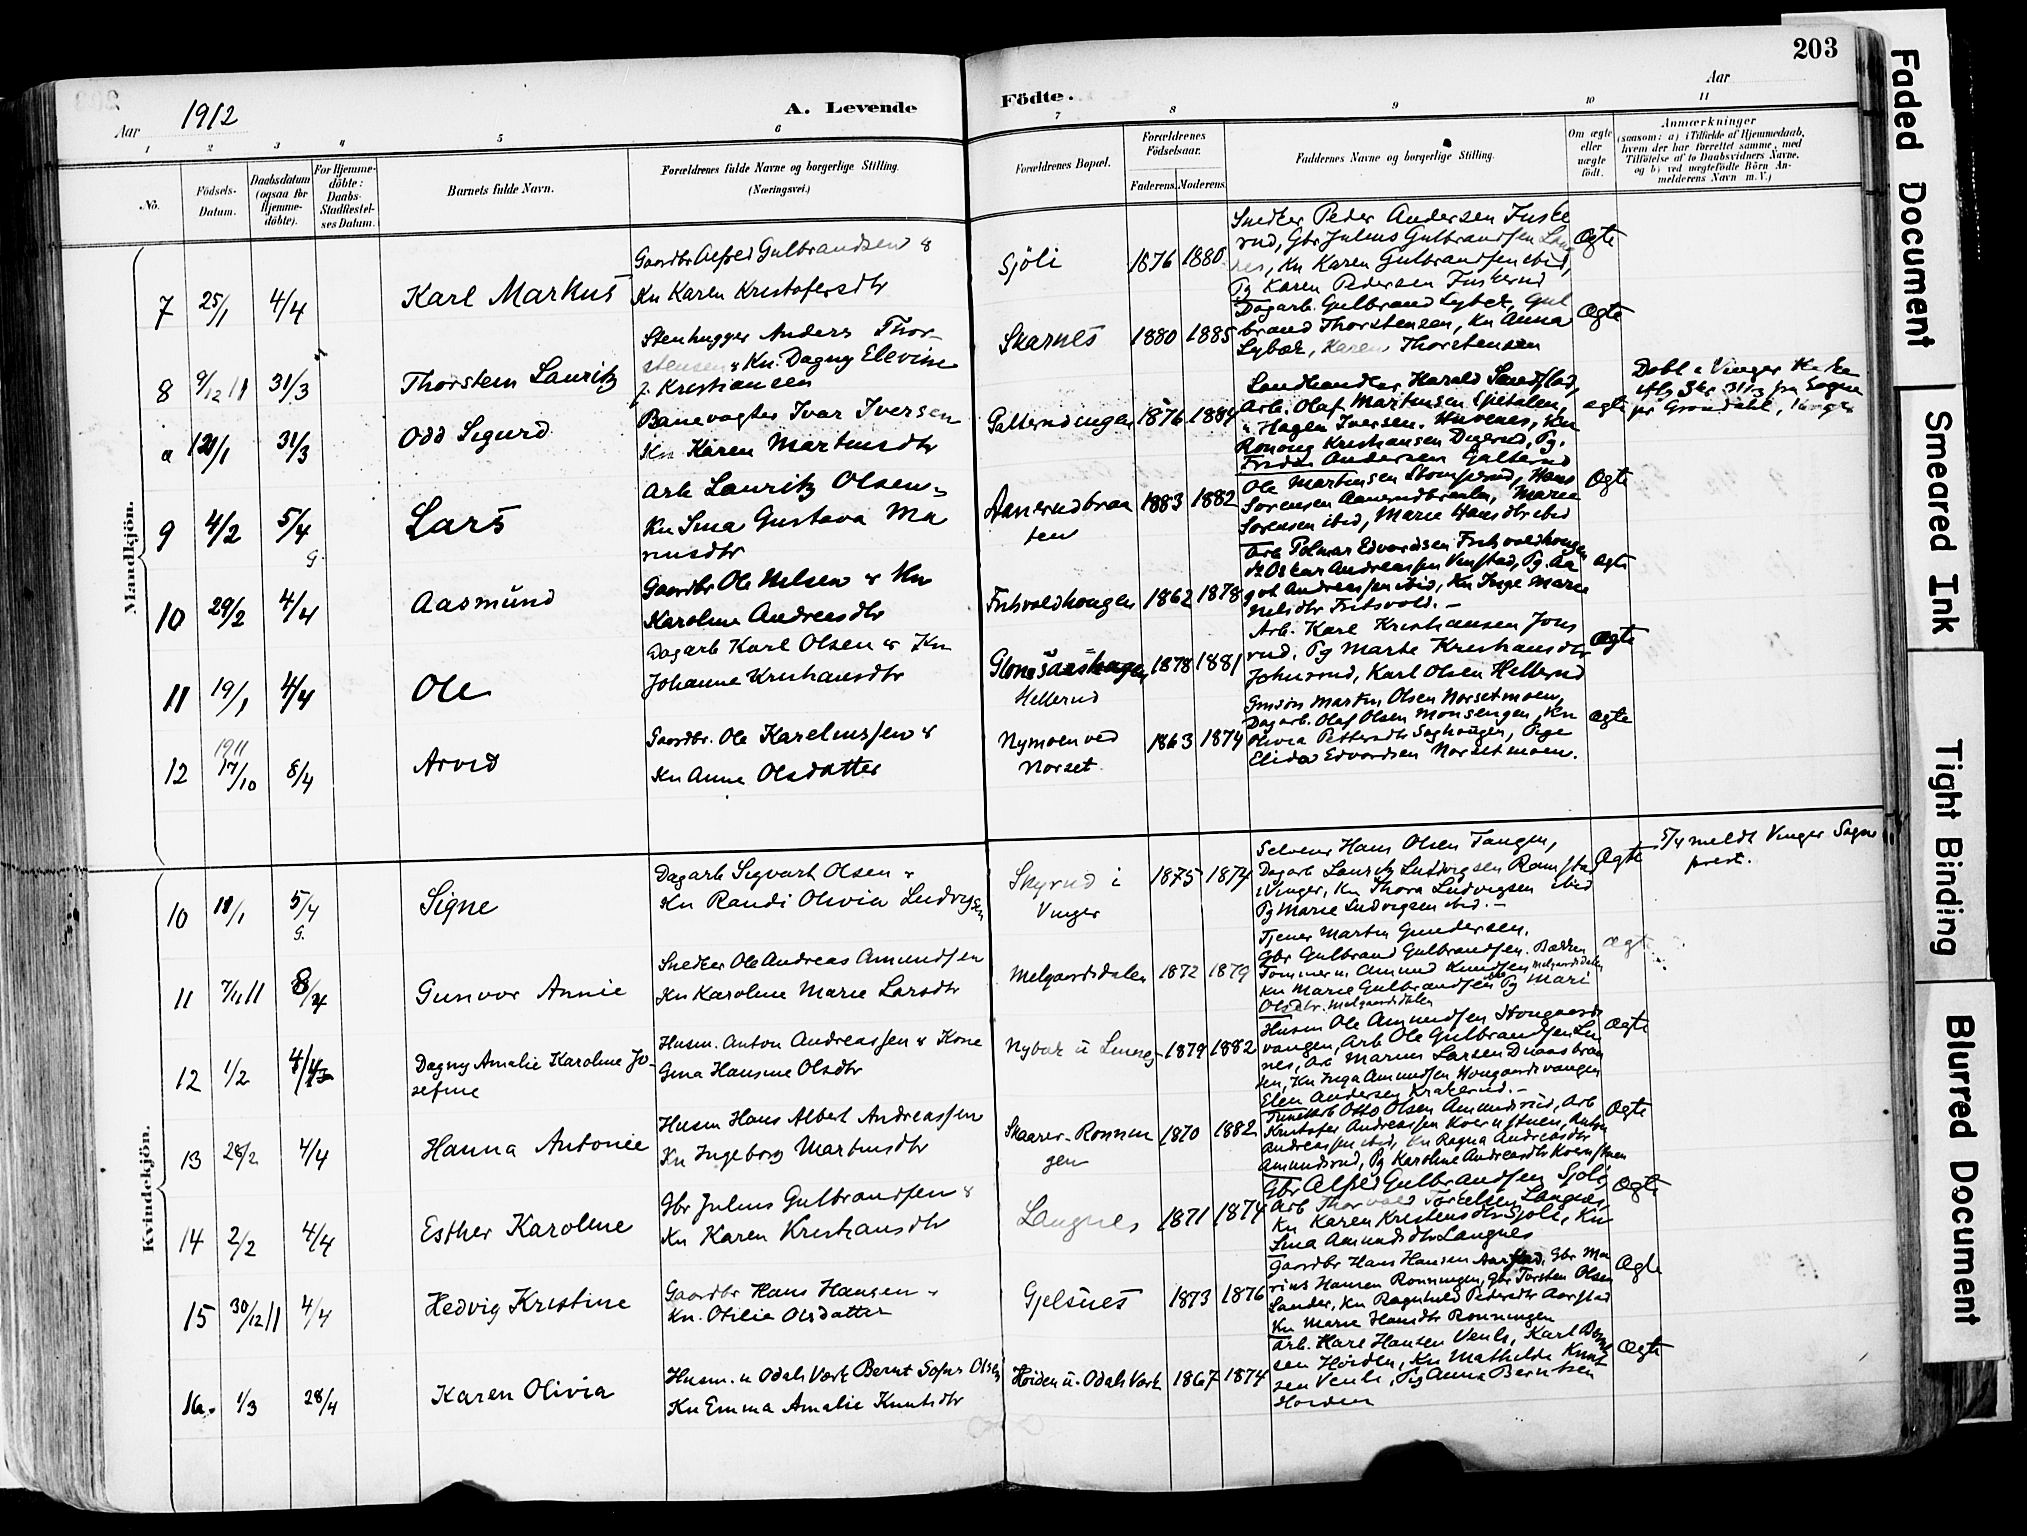 203
Aar 1912
A. Levende Födte.
Aar
1 2 3 4 5 6 7 8 9 10 11
No.
Födsels-Datum.
Daabsdatum (ogsaa for Hjemme-döbte).
For Hjemme-döbte: Daabs-Stadfestel-ses Datum.
Barnets fulde Navn.
Forældrenes fulde Navne og borgerlige Stilling. (Næringsvei.)
Forældrenes Bopæl.
Forældrenes Födselsaar.
Faderens. Moderens.
Faddernes Navne og borgerlige Stilling.
Om ægte eller uægte født.
Anmærkninger
(saasom: a) i Tilfælde af Hjemmedaab,
hvem der har forrettet samme, med
Tilföielse af to Daabsvidners Navne,
og b) ved uægtefödte Börn An-
melderens Navn m. V.)
Mandkjön.
7 25/1 4/4 Karl Markus
Gaardbr Alfred Gulbrandsen &
Kn Karen Kristofersdtr
Sjöli 1876 1880
Snedker Peder Andersen Fuske
rud, Gbr Julius Gulbrandsen Lang
nes, Kn Karen Gulbrandsen ibid,
Pg Karen Pedersen Fuskerud
Ægte
8 9/12 11 31/3 Thorstein Lauritz
Stenhugger Anders Thor-
stensen & Kn. Dagny Elevine
f. Kristiansen
Skarnes 1880 1885
Dagarb. Gulbrand Lybek, Gul
brand Thorstensen, Kn Anna
Lybæk, Karen Thorstensen
Ægte
Döbt i Vinger
a 21/1 31/3 Odd Sigurd
Banevogter Ivar Iversen
Kn Karen Martinsdtr
Galterudengen 1876 1884
Landhandler Harald Sandstad,
Arb. Olaf Martinsen Spitalen,
Hagen Iversen, Kn
Kristiansen Digerud, Pg.
Frida Andersen Galterud
ægte
9 4/2 5/4 G. Lars
Arb Lauritz Olsen
Kn Lina Gustava Ma
rinsdtr
Aanerudbraa
ten 1883 1882
Ole Martinsen Stomperud, Hans
Sørensen Aanerudbraaten, Marie
Sørensen ibid, Marie Hansdtr ibid
Ægte
10 29/2 4/4 Aasmund
Gaardbr Ole Nilsen & Kn
Karoline Andreasdtr
Fritsvoldhougen 1862 1878
Arb Edvardsen Fritsvoldhougen
Oskar Andreassen Venstad, Pg. Aa
got Andreassen ibid, Kn Inge Marie
Nilsdtr Fritsvold. —
ægte
11 19/1 4/4 Ole
Dagarb Karl Olsen & Kn
Johanne Kristiansdtr
Hellerud 1878 1881
Arb. Karl Kristiansen Jons
rud, Pg Marte Kristiansdtr
Johnsrud, Karl Olsen Hellerud
Ægte
12 1911 17/10 8/4 Arvid
Gaardbr. Ole Karelinssen &
Kn Anne Olsdatter
Nymoen ved
Norset 1863 1874
Martin Olsen Norsetmoen,
Dagarb. Olaf Olsen Monsengen, Kn
Olivia Pettersdtr Saghaugen, Pige
Elida Edvardsen Norsetmoen.
ægte
Kvindekjön.
10 18/1 5/4 G. Signe
Dagarb Sigvart Olsen &
Kn Randi Olivia Ludvigsen
Skyrud i
Vinger 1875 1874
Selveier Hans Olsen Tangen,
Dagarb Lauritz Ludvigsen Ramstad
i Vinger, Kn Thora Ludvigsen ibid
Pg Marie Ludvigsen ibid. —
Ægte
5/4 meldt Vinger Sogne
prest.
11 7/11 11 8/4 Gunvor Annie
Snedker Ole Andreas Amundsen
Kn Karoline Marie Larsdtr
Melgaardsdalen 1872 1879
Tjener Martin Gundersen.
Gbr Gulbrand Gulbrandsen Bakken
Tømmerm Amund Knudsen Melgaardsdalen
Kn Marie Gulbrandsen Pg Mari
Olsdtr. Melgaardsdalen
ægte
12 1/2 4/4 Dagny Amalie Karoline Jo-
sefine
Husm. Anton Andreassen & Kone
Gina Hansine Olsdtr
Nybak u Linnes 1879 1882
Husm Ole Amundsen Hougaards
vangen, Arb Ole Gulbrandsen Lin
nes, Arb Marius Larsen
ten, Kn Inga Amundsen Hougaardsvangen
Elen Andersen Krakerud. —
Ægte
13 28/2 4/4 Hanna Antonie
Husm Hans Albert Andreassen
Kn Ingeborg Martinsdtr
Skaarer-Ronnin
gen 1870 1882
Otto Olsen Amundsrud, Arb
Kristofer Andreassen Anton
Andreassen ibid, Kn Ragna Andreasdtr
Amundsrud, Pg Karoline Andreasdtr
Ægte
14 2/2 4/4 Esther Karoline
Gbr Julius Gulbrandsen &
Kn Karen Kristiansdtr
Langnes 1871 1874
Gbr Alfred Gulbrandsen Sjöli
Arb Thorvald Torkelsen Langnes,
Kn Karen Kristensdtr Sjöli, Kn
Lina Amundsdtr Langnes
Ægte
15 30/12 11 4/4 Hedvig Kristine
Gaardbr Hans Hansen &
Kn. Otilie Olsdatter
Gjelsnes 1873 1876
Gaardbr Hans Hansen Aarstad, Gbr Ma
rius Hansen Ronningen, Gbr Torsten Olsen
Sander, Kn Ragnhild Pedersdtr Aarstad
Kn Marie Hansdtr Ronningen
Ægte
16. 1/3 28/4 Karen Olivia
Husm. u Odals Værk Bernt Sofus Olsen
Kn Emma Amalie Knutsdtr
Höiden u. Odals Værk 1867 1874
Arb. Karl Hansen Venli, Karl Bernt
sen Höiden, Kn Mathilde Knut
sen Venli, Pg Anna Berntsen
Höiden
Ægte
Faded Document
Smeared Ink
Tight Binding
Blurred Document